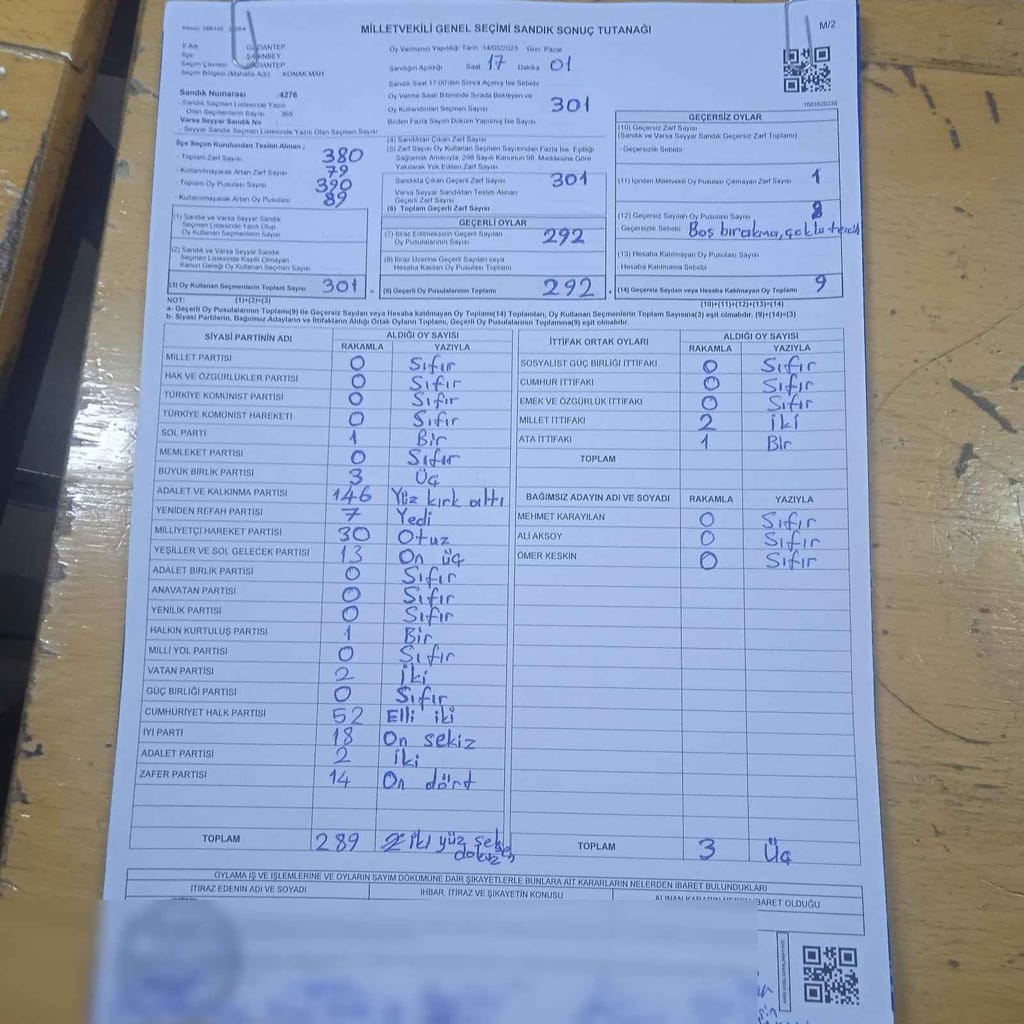 MİLLETVEKİLİ GENEL SEÇİMİ SANDIK SONUÇ TUTANAĞI
M/2
İl Adı GAZİANTEP
İlçe ŞAHİNBEY
Seçim Çevresi GAZİANTEP
Seçim Bölgesi (Mahalle Adı) KONAK MAH
Oy Vermenin Yapıldığı Tarih 14/05/2023 Gün Pazar
Sandığın Açıldığı Saat 17 Dakika 01
Sandık Saat 17:00'den Sonra Açılmış İse Sebebi
Sandık Numarası :4276
- Sandık Seçmen Listesinde Yazılı
Olan Seçmenlerin Sayısı 365
Varsa Seyyar Sandık No
- Seyyar Sandık Seçmen Listesinde Yazılı Olan Seçmen Sayısı
Oy Verme Saati Bitiminde Sırada Bekleyen ve
Oy Kullandırılan Seçmen Sayısı 301
Birden Fazla Sayım Döküm Yapılmış İse Sayısı
İlçe Seçim Kurulundan Teslim Alınan ;
- Toplam Zarf Sayısı 380
- Kullanılmayarak Artan Zarf Sayısı 79
- Toplam Oy Pusulası Sayısı 390
- Kullanılmayarak Artan Oy Pusulası 89
(1) Sandık ve Varsa Seyyar Sandık
Seçmen Listesinde Yazılı Olup
Oy Kullanan Seçmenlerin Sayısı
(2) Sandık ve Varsa Seyyar Sandık
Seçmen Listesinde Kayıtlı Olmayan
Kanun Gereği Oy Kullanan Seçmen Sayısı
(3) Oy Kullanan Seçmenlerin Toplam Sayısı 301
(1)+(2)=(3)
(4) Sandıktan Çıkan Zarf Sayısı
(5) Zarf Sayısı Oy Kullanan Seçmen Sayısından Fazla İse, Eşitliği
Sağlamak Amacıyla, 298 Sayılı Kanunun 98. Maddesine Göre
Yakılarak Yok Edilen Zarf Sayısı
Sandıkta Çıkan Geçerli Zarf Sayısı 301
Varsa Seyyar Sandıktan Teslim Alınan
Geçerli Zarf Sayısı
(6) Toplam Geçerli Zarf Sayısı
GEÇERLİ OYLAR
(7) İtiraz Edilmeksizin Geçerli Sayılan
Oy Pusulalarının Sayısı 292
(8) İtiraz Üzerine Geçerli Sayılan veya
Hesaba Katılan Oy Pusulası Toplamı
(9) Geçerli Oy Pusulalarının Toplamı 292
1083820230
GEÇERSİZ OYLAR
(10) Geçersiz Zarf Sayısı
(Sandık ve Varsa Seyyar Sandık Geçersiz Zarf Toplamı)
- Geçersizlik Sebebi
(11) İçinden Milletvekili Oy Pusulası Çıkmayan Zarf Sayısı 1
(12) Geçersiz Sayılan Oy Pusulası Sayısı 8
Geçersizlik Sebebi Boş bırakma, çoklu tercih
(13) Hesaba Katılmayan Oy Pusulası Sayısı
Hesaba Katılmama Sebebi
(14) Geçersiz Sayılan veya Hesaba Katılmayan Oy Toplamı 9
(10)+(11)+(12)+(13)=(14)
NOT:
a- Geçerli Oy Pusulaları Toplamı(9) ile Geçersiz Sayılan veya Hesaba Katılmayan Oy Toplamı(14) Toplamları, Oy Kullanan Seçmenlerin Toplam Sayısına(3) eşit olmalıdır. (9)+(14)=(3)
b- Siyasi Partilerin, Bağımsız Adayların ve İttifakların Aldığı Ortak Oyların Toplamı, Geçerli Oy Pusulalarının Toplamına(9) eşit olmalıdır.
SİYASİ PARTİNİN ADI ALDIĞI OY SAYISI
RAKAMLA YAZIYLA
MİLLET PARTİSİ 0 Sıfır
HAK VE ÖZGÜRLÜKLER PARTİSİ 0 Sıfır
TÜRKİYE KOMÜNİST PARTİSİ 0 Sıfır
TÜRKİYE KOMÜNİST HAREKETİ 0 Sıfır
SOL PARTİ 1 Bir
MEMLEKET PARTİSİ 0 Sıfır
BÜYÜK BİRLİK PARTİSİ 3 Üç
ADALET VE KALKINMA PARTİSİ 146 Yüz kırk altı
YENİDEN REFAH PARTİSİ 7 Yedi
MİLLİYETÇİ HAREKET PARTİSİ 30 Otuz
YEŞİLLER VE SOL GELECEK PARTİSİ 13 On üç
ADALET BİRLİK PARTİSİ 0 Sıfır
ANAVATAN PARTİSİ 0 Sıfır
YENİLİK PARTİSİ 0 Sıfır
HALKIN KURTULUŞ PARTİSİ 1 Bir
MİLLİ YOL PARTİSİ 0 Sıfır
VATAN PARTİSİ 2 İki
GÜÇ BİRLİĞİ PARTİSİ 0 Sıfır
CUMHURİYET HALK PARTİSİ 52 Elli iki
İYİ PARTİ 18 On sekiz
ADALET PARTİSİ 2 İki
ZAFER PARTİSİ 14 On dört
TOPLAM 289 İki yüz seksen dokuz
İTTİFAK ORTAK OYLARI ALDIĞI OY SAYISI
RAKAMLA YAZIYLA
SOSYALİST GÜÇ BİRLİĞİ İTTİFAKI 0 Sıfır
CUMHUR İTTİFAKI 0 Sıfır
EMEK VE ÖZGÜRLÜK İTTİFAKI 0 Sıfır
MİLLET İTTİFAKI 2 İki
ATA İTTİFAKI 1 Bir
TOPLAM
BAĞIMSIZ ADAYIN ADI VE SOYADI RAKAMLA YAZIYLA
MEHMET KARAYILAN 0 Sıfır
ALİ AKSOY 0 Sıfır
ÖMER KESKİN 0 Sıfır
TOPLAM 3 Üç
OYLAMA İŞ VE İŞLEMLERİNE VE OYLARIN SAYIM DÖKÜMÜNE DAİR ŞİKAYETLERLE BUNLARA AİT KARARLARIN NELERDEN İBARET BULUNDUKLARI
İTİRAZ EDENİN ADI VE SOYADI İHBAR, İTİRAZ VE ŞİKAYETİN KONUSU ALINAN KARARIN NEDEN İBARET OLDUĞU